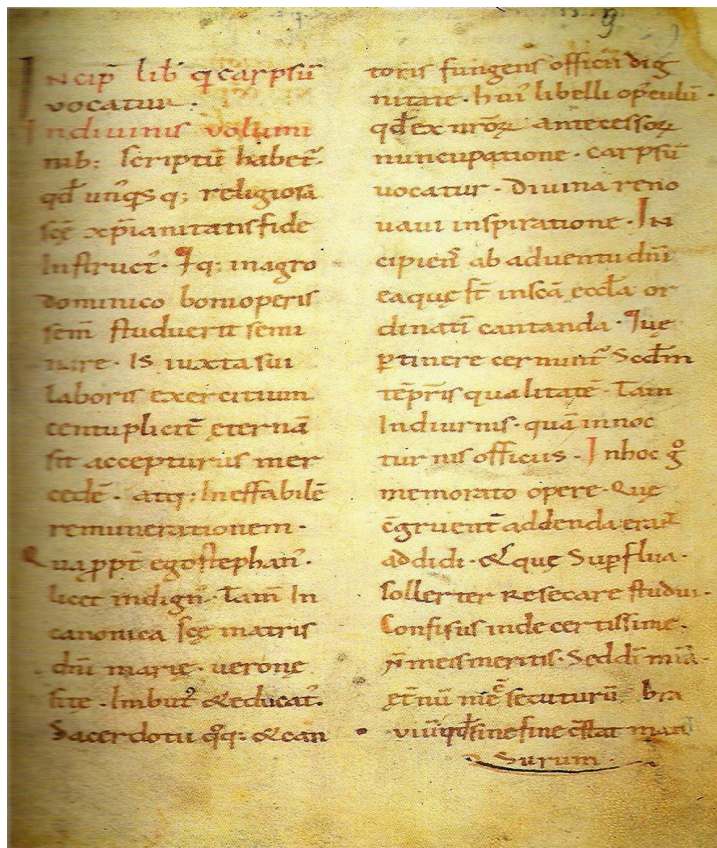 Incip̄ lib̄ q̄ carpsū
vocatur.
In diuinis volumi
nib; scriptū habet̄.
qđ unq̄sq; religiosa
scę xp̄ianitatis fide
Instruct̄. Iq; in agro
dominico boni operis
sem̄ studuerit semi
nare. Is iuxta sui
laboris exercitium
centuplicit̄ ęternā
sit accepturus mer
cedē. atq; Ineffabilē
remunerationem.
Quapp̄t ego stephan'.
licet indign'. Tam̄ In
canonica scę matris
dn̄i marię. veronę
site. Imbut' & educat'.
Sacerdotii q̊q; & can
toris fungens officii dig
nitate. hui' libelli op̄culū.
qđ ex nr̄oꝝ antecessoꝝ
nuncupatione. carpsū
vocatur. Diuina reno
uaui inspiratione. In
cipiens ab aduentu dn̄i
eaquę st̄ in scā ęccl̄a or
dinati cantanda. Iuę
ptinere cernunt'. Scdm̄
tēpris qualitatē. Tam
In diurnis. quā in noc
turnis officiis. In hoc g̊
memorato opere. Quę
c̄gruent̄ addenda erat
addidi. & quę Supflua.
sollerter Resecare studui.
Confisus inde certissime.
n̄ meis meritis. Sed dī mīa.
ęt̄nū me secuturū bra
viū qđ sine fine c̄stat man
surum.